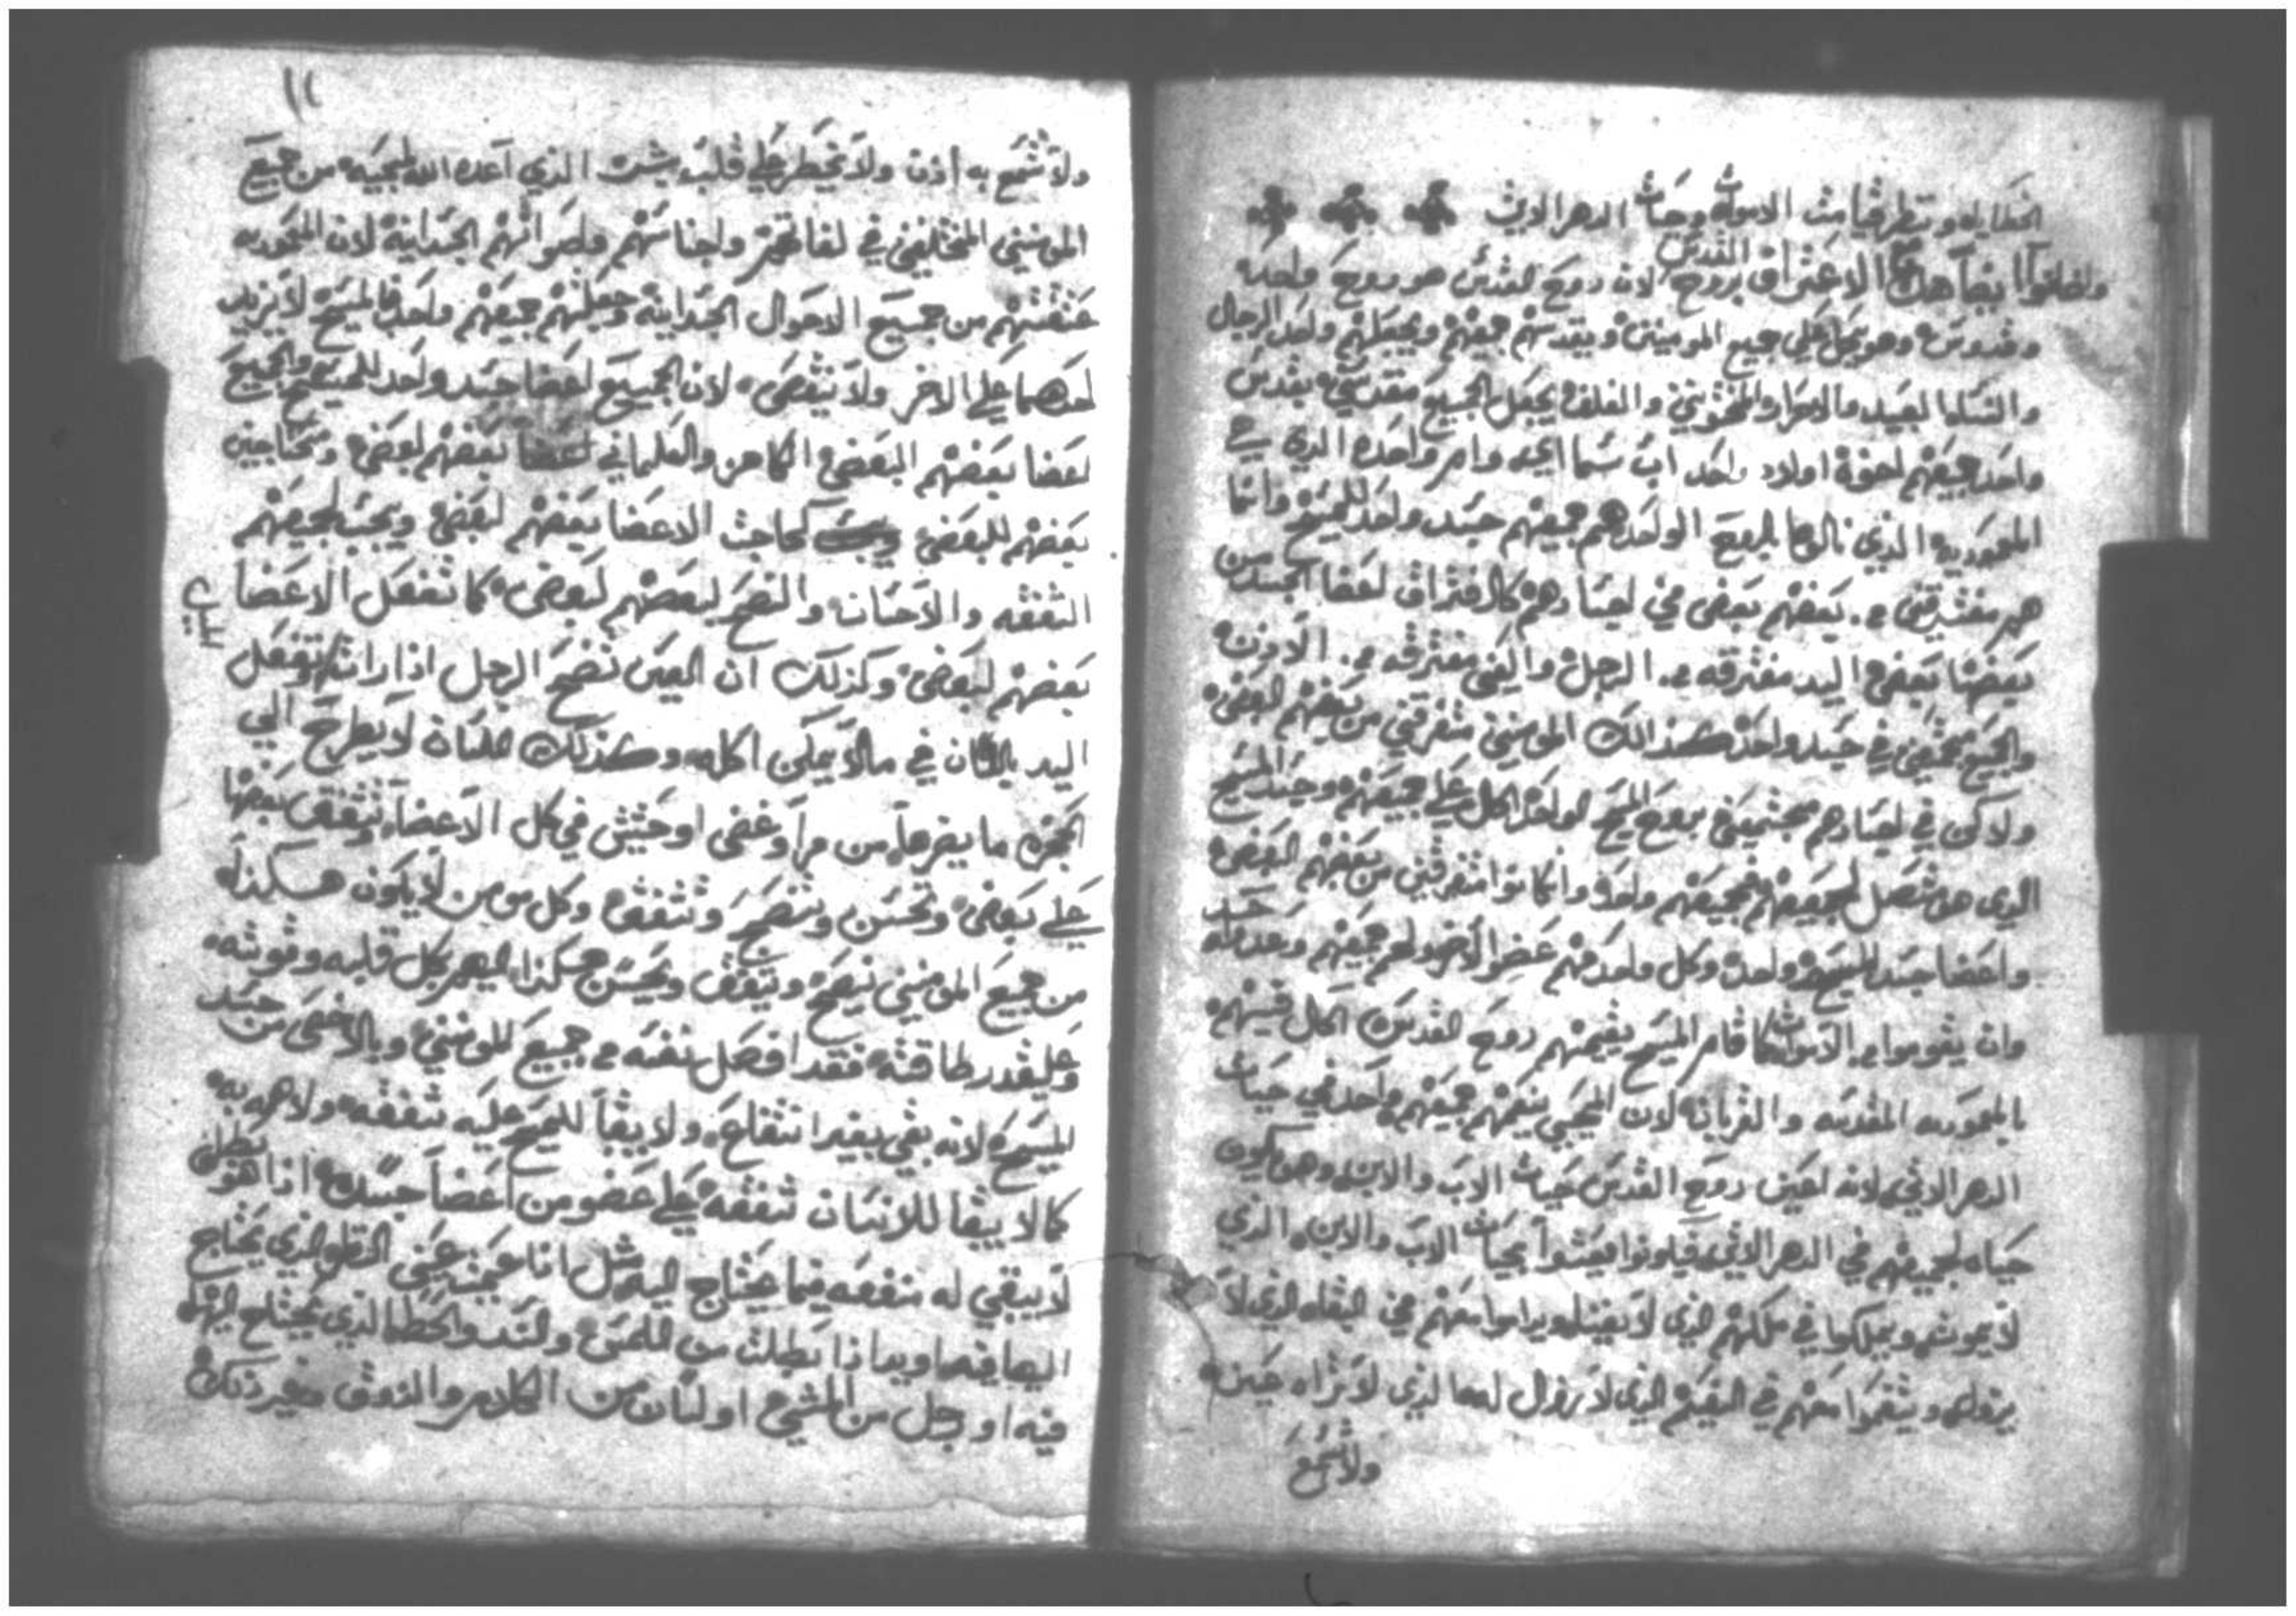 الخطايا وننتظر قيامت الاموات وحيات الدهر الاتي
وقالوا ايضا هذا الاعتراف بروح المقدس لان روح القدس هو روح واحد
وقدوس وهو يحل على جميع المومنين ويقدسهم جميعهم ويجعلهم واحد الرجال
والنسا العبيد والاحرار والمختونين والغلف يجعل الجميع مقدسين بقدس
واحد جميعهم اخوة اولاد واحد اب سمايي وامر واحده الذي هي
المعموديه الذين نالوها بالروح الواحد هم جميعهم جسد واحد للمسيح وانما
هم مفترقين من بعضهم بعض في اجسادهم كافتراق اعضا الجسد من
بعضها بعض اليد مفترقه من الرجل والعين مفترقه من الاذن
والجميع مجتمعين في جسد واحد كذالك المومنين متفرقين من بعضهم البعض
ولاكن في اجسادهم مجتمعين بروح المسيح الواحد الحال على جميعهم وجسد المسيح
الذي هو متصل لجميعهم فجميعهم واحد وان كانوا متفرقين من بعضهم البعض
واعضا جسد المسيح واحد وكل واحد منهم عضوا لاخر ولهم جميعهم وبعد مماته جسد
وان يقوموا من الاموات كما قام المسيح يقيمهم روح القدس الحال فيهم
بالمعموديه المقدسه والقربان لان المحيي ينعمهم جميعهم واحد في حيات
الدهر الاتي لانه اعني روح القدس حيات الاب والابن وهو يكون
حياه لجميعهم في الدهر الاتي فيكونوا يعيشوا بحيات الاب والابن الذي
لا يموت ويملكوا في ملكهم الذي لا يفنا ويداموا معهم في البقاه الذي لا
يزول ويتنعموا معهم في النعيم الذي لا يزول لهما الذي لا تراه عين
ولا تسمع
١١
ولا تسمع به أذن ولا يخطر على قلب بشر الذي اعده الله لمحبيه من جميع
المومنين المختلفين في لغاتهم واجناسهم واصواتهم الجسدانية لان المعموديه
عتقتهم من جميع الاحوال الجسدانية وجعلتهم جميعهم واحد بالمسيح لا يزيد
احدهما على الاخر ولا ينقص لان الجميع اعضا جسد واحد للمسيح والجميع
اعضا بعضهم البعض الكاهن والعلماني اعضا بعضهم لبعض ومحتاجين
بعضهم للبعض كحاجت الاعضا بعضهم لبعض ويجب لجميعهم
الشفقه والاحسان والنصح لبعضهم لبعض كما تفعل الاعضا
بعضهم لبعض وكذلك ان العين تنصح الرجل اذا راته وتفعل
اليد باللسان في مالا يمكن اكله وكذلك اللسان لا يطرح الي
الحنجره ما يضرها من مرا وغض او حشيش في كل الاعضا وتشفق بعضها
على بعض وتحسن وتنصح وتشفق وكل مومن لا يكون هكذا
من جميع المومنين ينصح ويشفق ويحسن هكذا اليهم بكل قلبه وقوته
وعلى قدر طاقته فقد افصل نفسه من جميع المومنين وبالاخص من جسد
المسيح لانه بقي بغير انتفاع ولا يبقا للمسيح عليه شفقه ولا هم به
كما لا يبقا للانسان شفقه على عضو من اعضا جسده اذا هو بطل
لا يبقي له منفعه فيما يحتاج اليه مثل انا عميت عين النظر الذي يحتاج
اليها فيه او يدا اذا بطلت من اللمس والمسك والعطا الذي يحتاج اليها
فيه او رجل من المشي او لسان من الكلام والذوق وغير ذلك